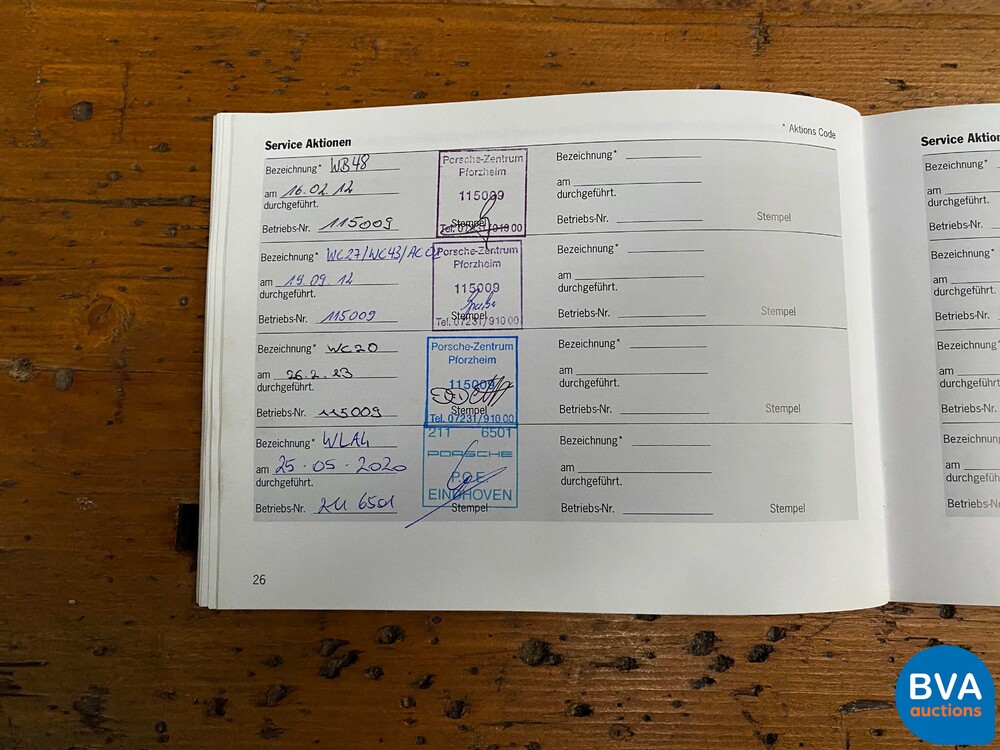 Service Aktionen
* Aktions Code
Bezeichnung* WB48
am 16.02.12
durchgeführt.
Betriebs-Nr. 115009
Porsche-Zentrum
Pforzheim
115009
Stempel
Tel. 07231/910 00
Bezeichnung*
am
durchgeführt.
Betriebs-Nr.
Stempel
Bezeichnung* WC27/WC43/AC02
am 19.09.12
durchgeführt.
Betriebs-Nr. 115009
Porsche-Zentrum
Pforzheim
115009
Stempel
Tel. 07231/910 00
Bezeichnung*
am
durchgeführt.
Betriebs-Nr.
Stempel
Bezeichnung* WC20
am 26.2.13
durchgeführt.
Betriebs-Nr. 115009
Porsche-Zentrum
Pforzheim
115009
Stempel
Tel. 07231/910 00
Bezeichnung*
am
durchgeführt.
Betriebs-Nr.
Stempel
Bezeichnung* WLA4
am 25-05-2020
durchgeführt.
Betriebs-Nr. 211 6501
211 6501
PORSCHE
P.O.E.
EINDHOVEN
Stempel
Bezeichnung*
am
durchgeführt.
Betriebs-Nr.
Stempel
26
Service Aktion
Bezeichnung*
am
durchgeführt.
Betriebs-Nr.
Bezeichnung*
am
durchgeführt.
Betriebs-Nr.
Bezeichnung*
am
durchgeführt.
Betriebs-Nr.
Bezeichnung
am
durchgeführt.
Betriebs-Nr.
BVA
auctions